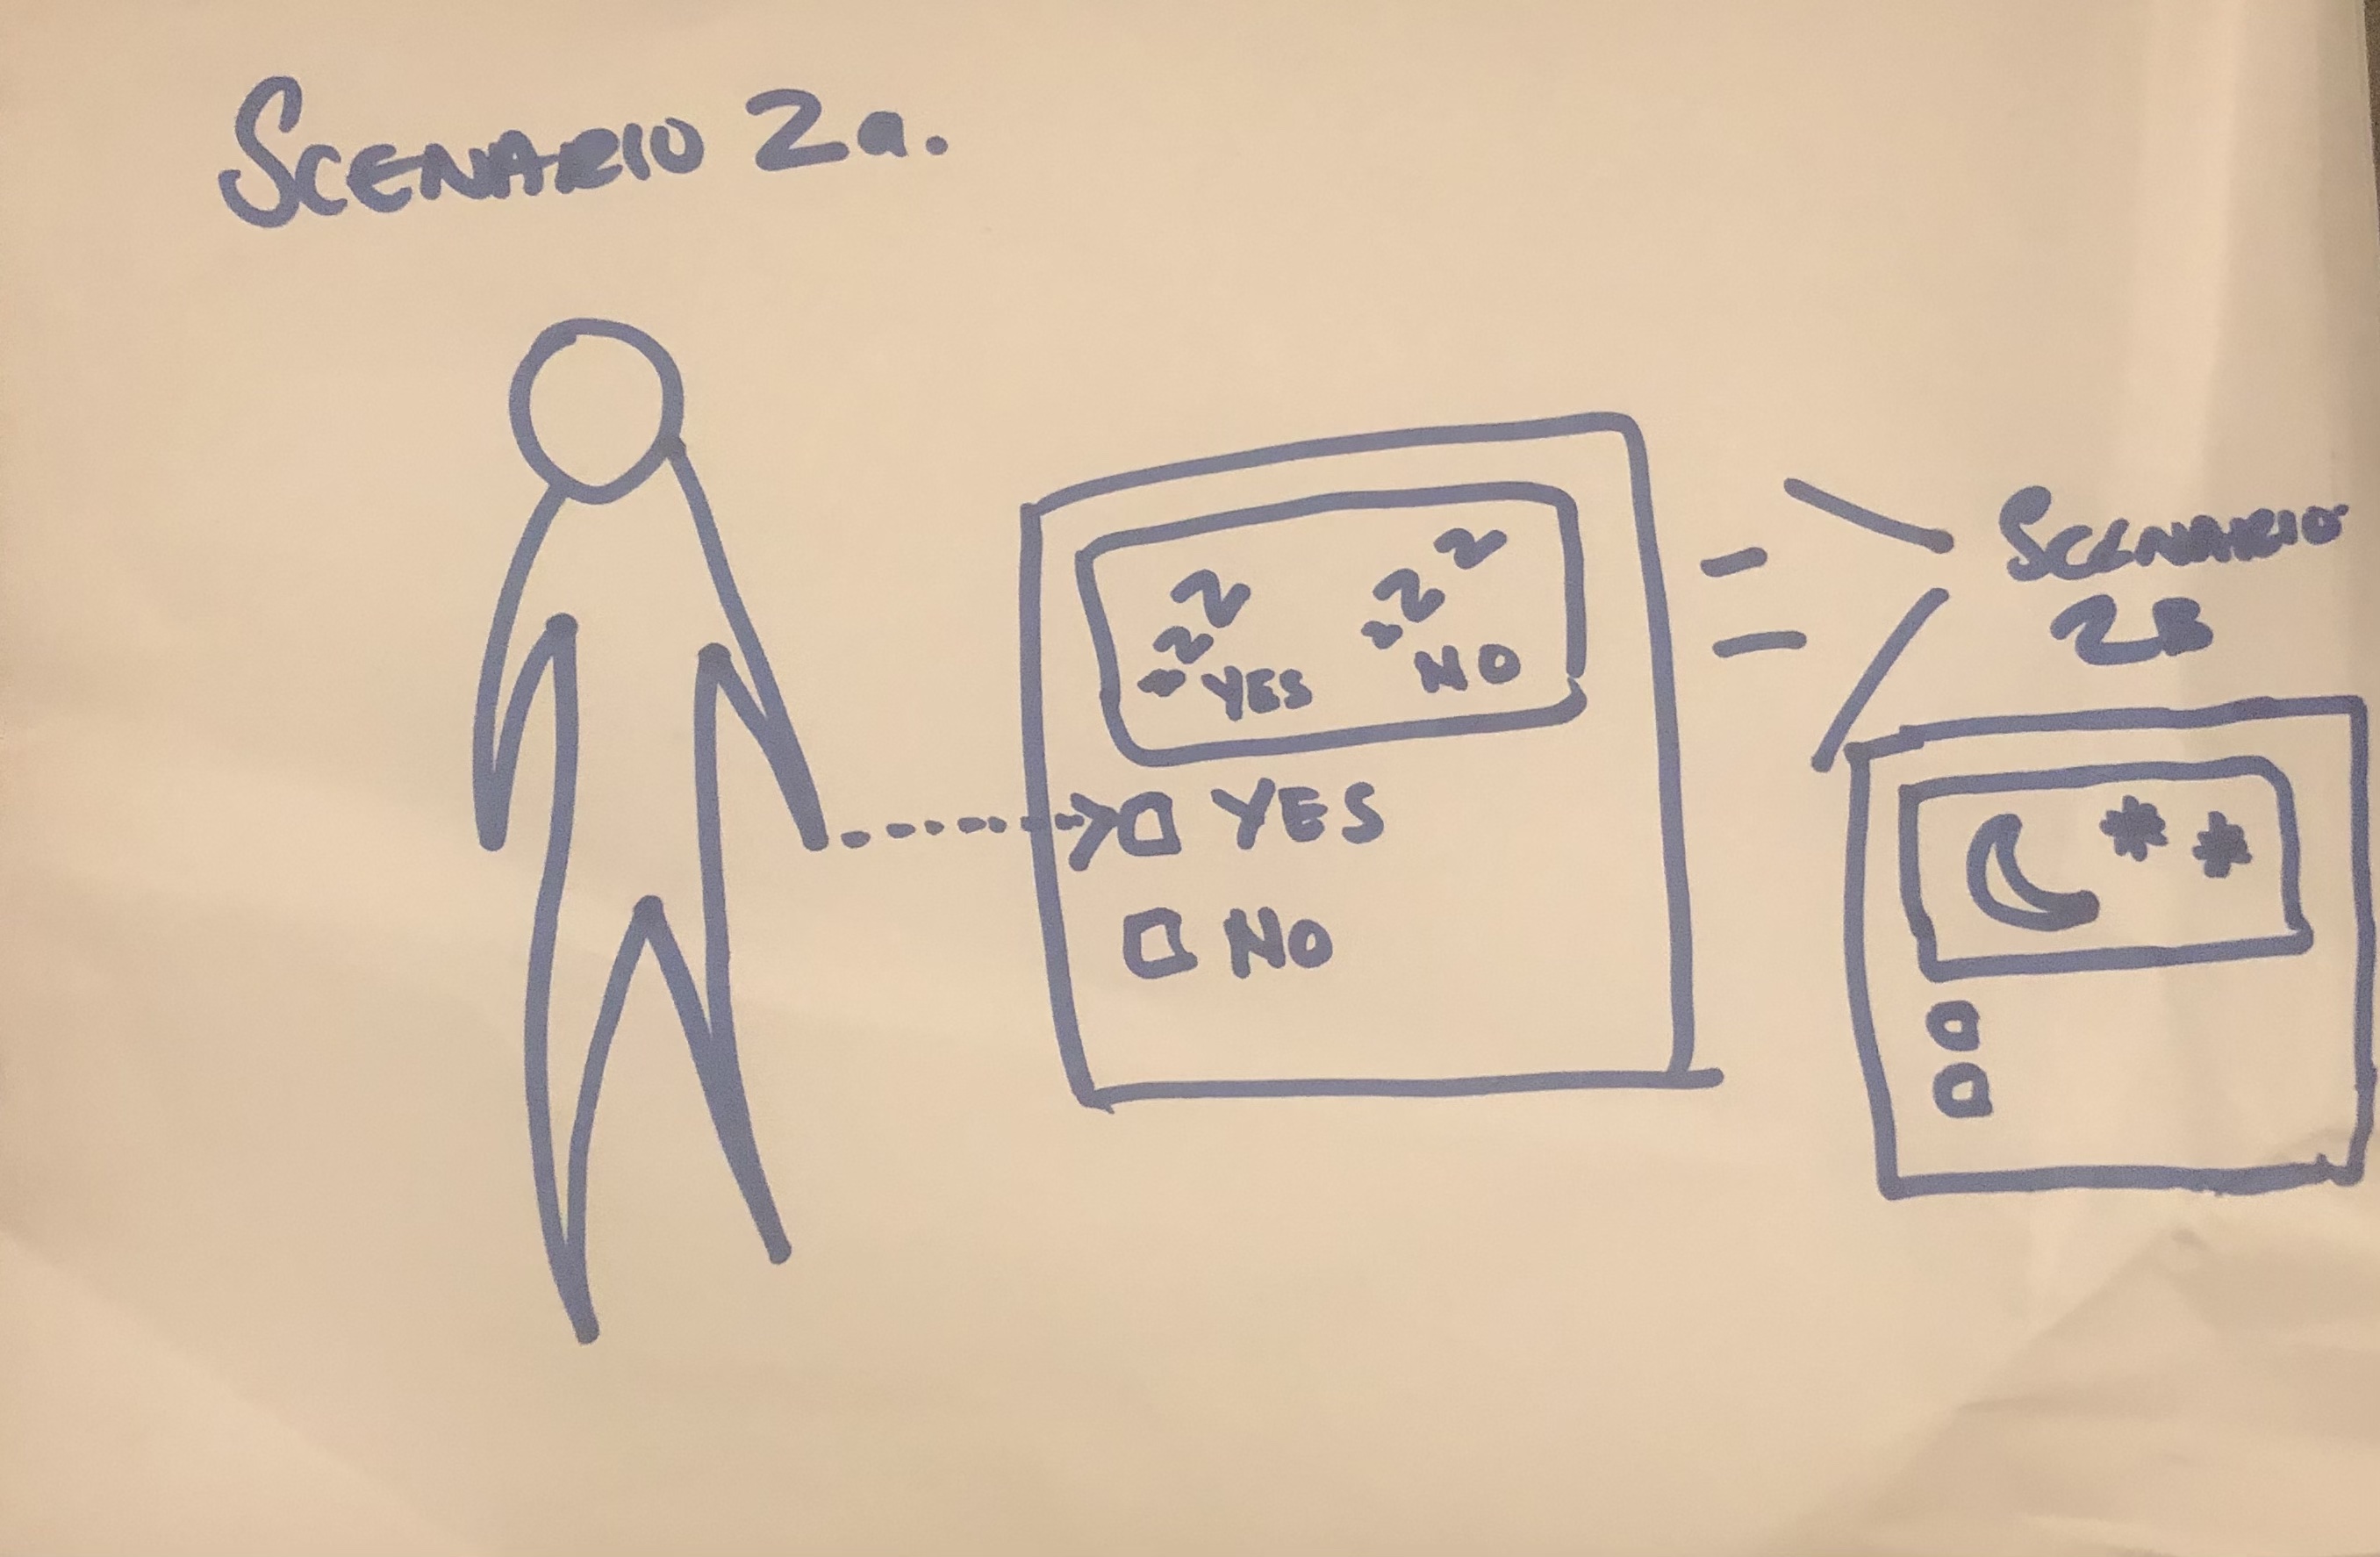 SCENARIO 2a.
YES NO
YES
NO
SCENARIO
2B